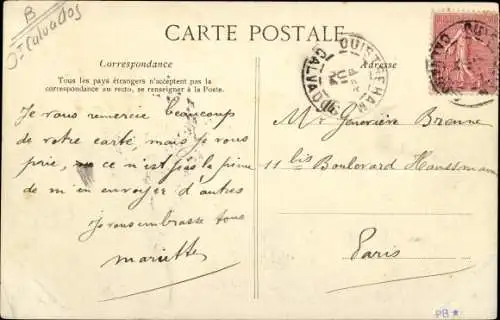 B
Calvados
CARTE POSTALE
Correspondance
Adresse
Tous les pays étrangers n'acceptent pas la
correspondance au recto, se renseigner à la Poste.
OUISTREHAM
CALVADOS
Je vous remercie beaucoup
de votre carte, mais je vous
prie, ce n'est pas la peine
de m'en envoyer d'autres
Je vous embrasse tous
Mariette
Mr Geneviève Brenne
11 bis Boulevard Haussmann
Paris
PB